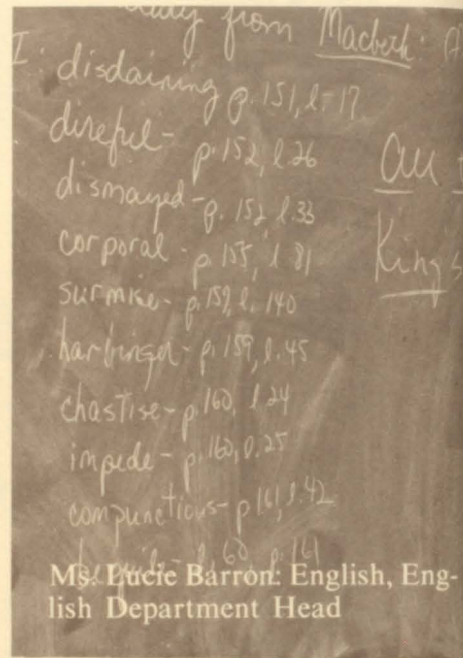 from Macbeth: A
I: disdaining p. 151, l-17
direful- p. 152, l.26
dismayed- p. 152 l.33
corporal- p 155, l 81
surmise- p. 159, l. 140
harbinger- p. 159, l.45
chastise- p 160, l.24
impede- p. 160, l.25
compunctious- p 161, l.42
beguile- l. 60, p. 161
King s
Ms. Lucie Barron: English, Eng-
lish Department Head